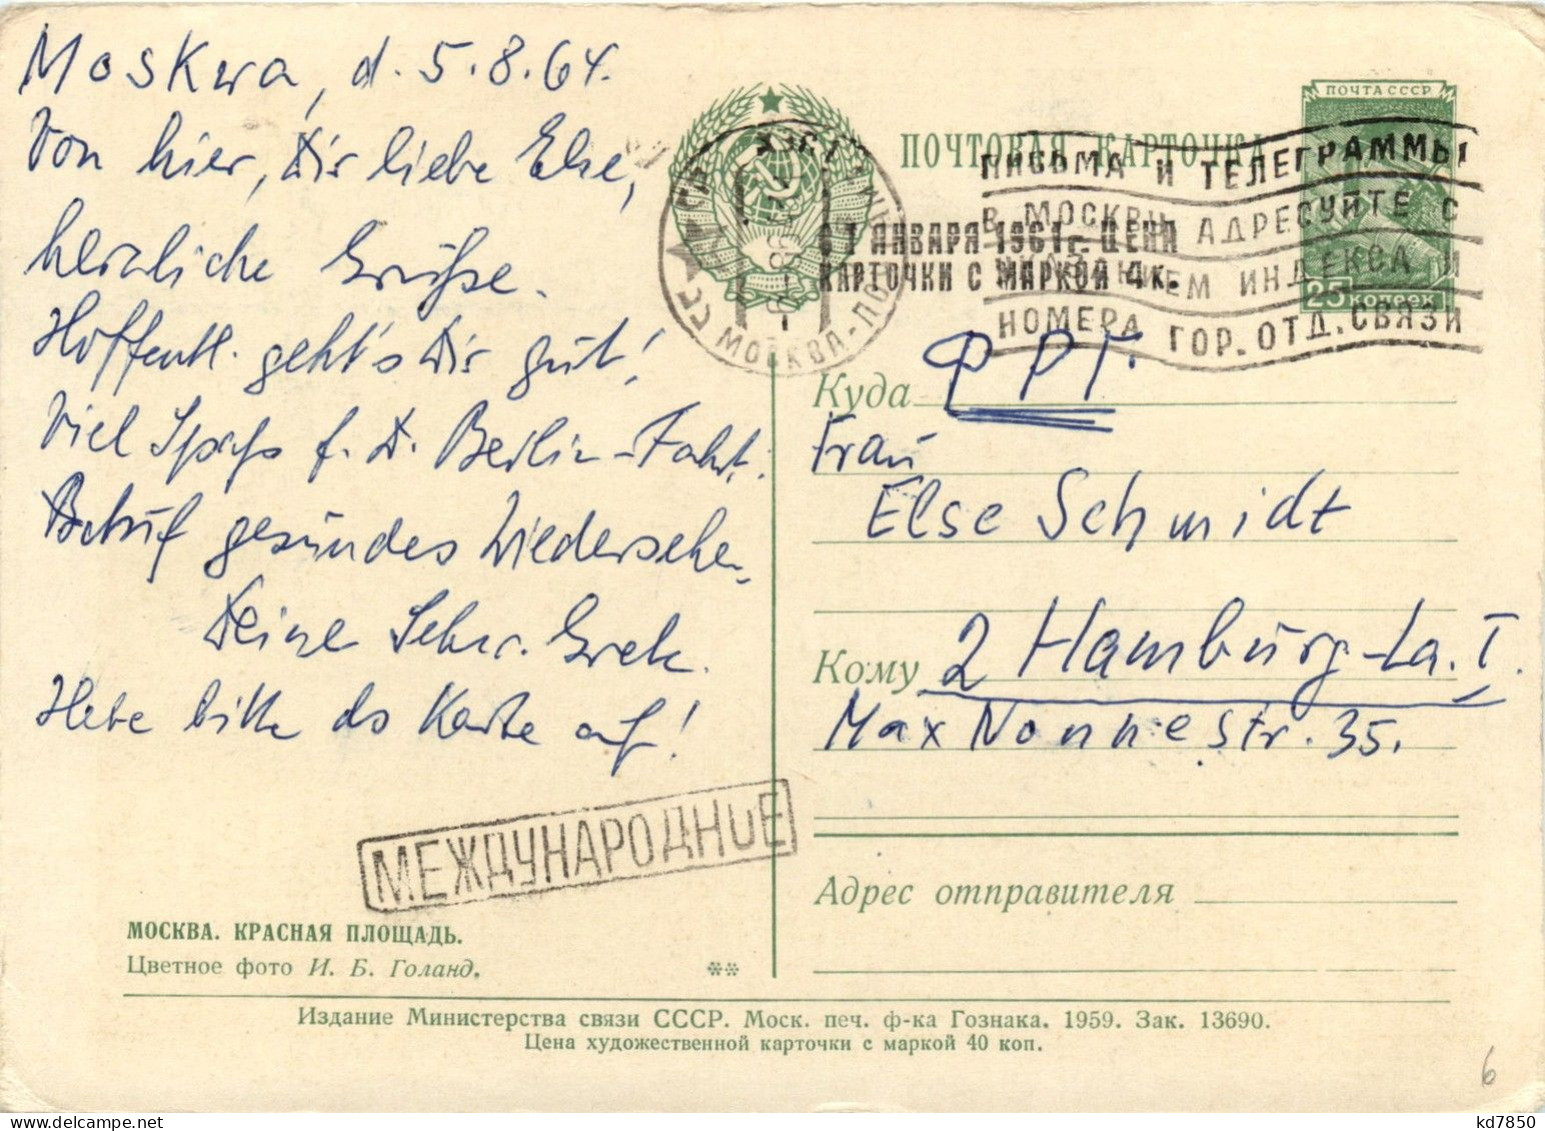 Moskwa, d. 5.8.64.
Von hier, Dir liebe Else,
herzliche Grüße.
Hoffentl. geht's Dir gut!
Viel Spaß f. D. Berlin-Fahrt.
Behuf gesundes Wiedersehen,
Deine Schw. Greh.
Hebe bitte ds Karte auf!
ПОЧТОВАЯ КАРТОЧКА
ПОЧТА СССР
25 копеек
ПИСЬМА И ТЕЛЕГРАММЫ
В МОСКВУ АДРЕСУЙТЕ С
УКАЗАНИЕМ ИНДЕКСА И
НОМЕРА ГОР. ОТД. СВЯЗИ
С 1 ЯНВАРЯ 1961 г. ЦЕНА
КАРТОЧКИ С МАРКОЙ 4 к.
МОСКВА
Куда ФРГ.
Frau
Else Schmidt
Кому 2 Hamburg-La. I.
Max Nonnestr. 35.
МЕЖДУНАРОДНОЕ
Адрес отправителя
МОСКВА. КРАСНАЯ ПЛОЩАДЬ.
Цветное фото И. Б. Голанд.
**
Издание Министерства связи СССР. Моск. печ. ф-ка Гознака. 1959. Зак. 13690.
Цена художественной карточки с маркой 40 коп.
6
kd7850